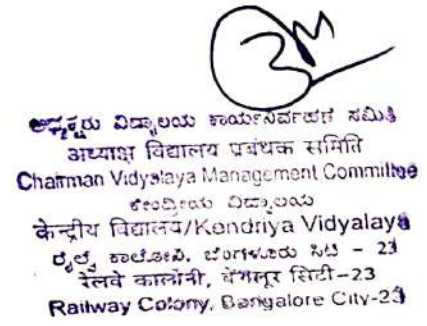 ಅಧ್ಯಕ್ಷರು ವಿದ್ಯಾಲಯ ಕಾರ್ಯನಿರ್ವಹಣ ಸಮಿತಿ
अध्याक्ष विद्यालय प्रबंधक समिति
Chairman Vidyalaya Management Committee
ಕೇಂದ್ರೀಯ ವಿದ್ಯಾಲಯ
केन्द्रीय विद्यालय/Kendriya Vidyalaya
ರೈಲ್ವೆ ಕಾಲೋನಿ, ಬೆಂಗಳೂರು ಸಿಟಿ - 23
रेलवे कालोनी, बेंगलूर सिटी-23
Railway Colony, Bangalore City-23